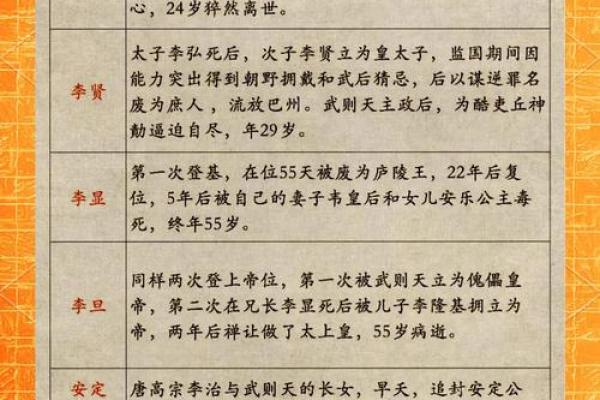 心，24岁猝然离世。
李贤
太子李弘死后，次子李贤立为皇太子，监国期间因
能力突出得到朝野拥戴和武后猜忌，后以谋逆罪名
废为庶人 ，流放巴州。武则天主政后，为酷吏丘神
勣逼迫自尽，年29岁。
李显
第一次登基，在位55天被废为庐陵王，22年后复
位，5年后被自己的妻子韦皇后和女儿安乐公主毒
死，终年55岁。
李旦
同样两次登上帝位，第一次被武则天立为傀儡皇
帝，第二次在兄长李显死后被儿子李隆基拥立为
帝，两年后禅让做了太上皇，55岁病逝。
安定
唐高宗李治与武则天的长女，早夭，追封安定公